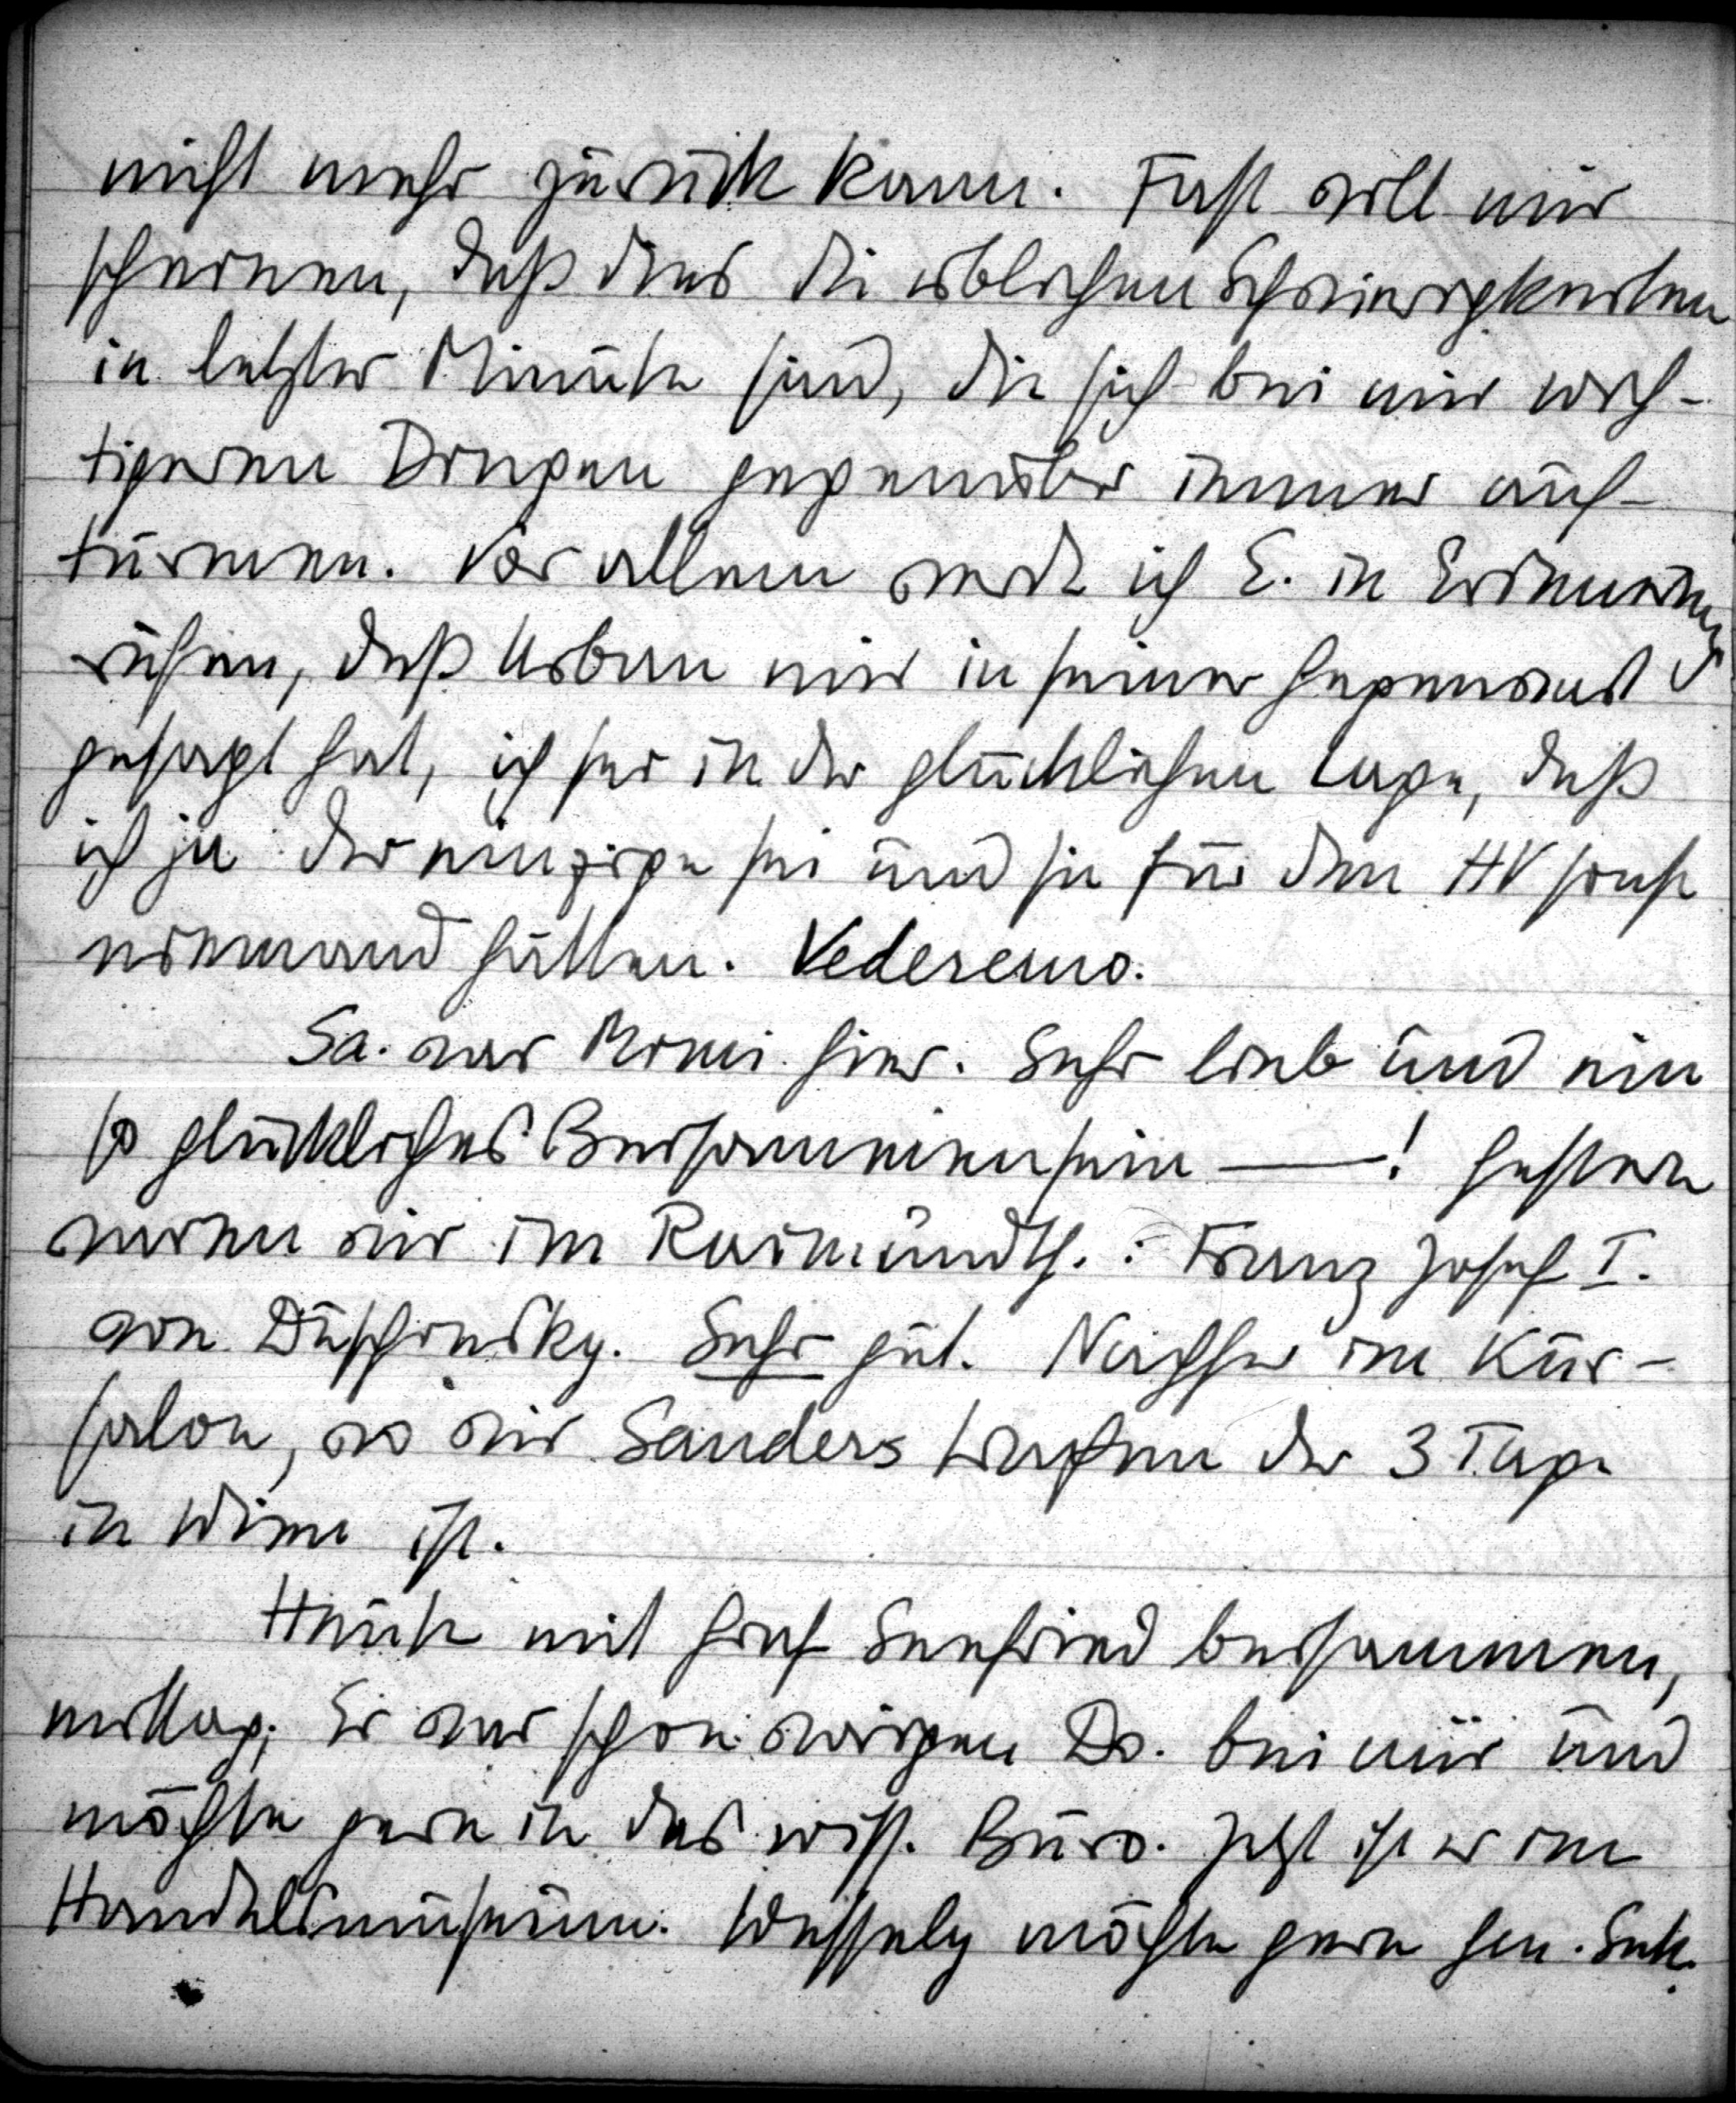 nicht mehr zurück kann. Fast will mir
scheinen, daß dies die üblichen Schwierigkeiten
in letzter Minute sind, die sich bei mir wich-
tigeren Dingen gegenüber immer auf-
türmen. Vor allem werde ich E. in Erinnerung
rufen, daß Urban mir in seiner Gegenwart
gesagt hat, ich sei in der glücklichen Lage, daß
ich ja der einzige sei und sie für den HV sonst
niemand hätten. Vederemo.
Sa. war Romi hier. Sehr lieb und ein
so glückliches Beisammensein —! Gestern
waren wir im Raimundth.: Franz Josef I.
von Duschinsky. Sehr gut. Nachher im Kur-
salon, wo wir Sanders trafen der 3 Tage
in Wien ist.
Heute mit Graf Seefried beisammen,
mittag; Er war schon vorigen Do. bei mir und
möchte gern in das wiss. Büro. Jetzt ist er im
Handelsmuseum. Wessely möchte gern Gen. Sek.